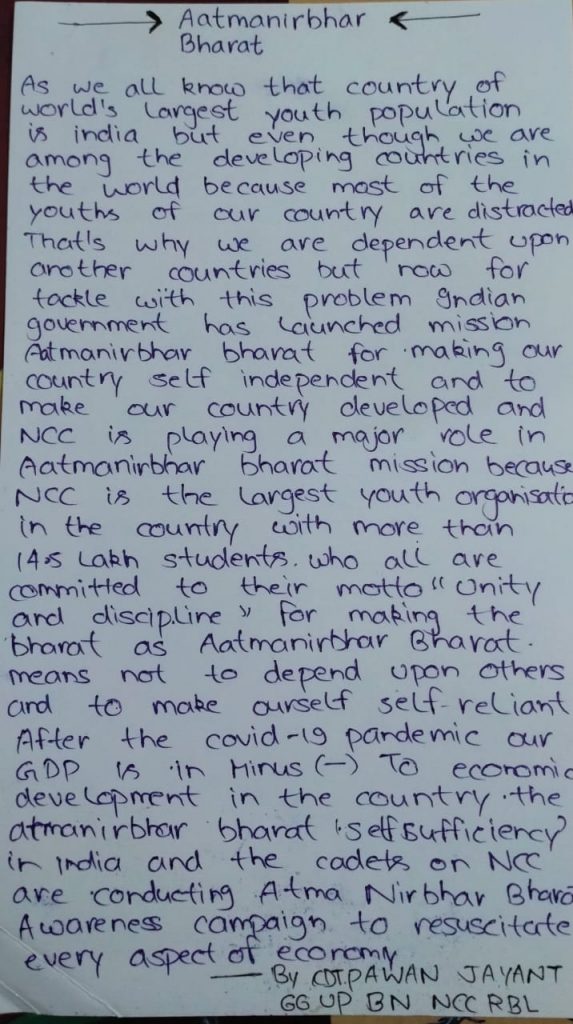 Aatmanirbhar
Bharat
As we all know that country of
world's largest youth population
is india but even though we are
among the developing countries in
the world because most of the
youths of our country are distracted
That's why we are dependent upon
another countries but now for
tackle with this problem Indian
government has launched mission
Aatmanirbhar bharat for making our
country self independent and to
make our country developed and
NCC is playing a major role in
Aatmanirbhar bharat mission because
NCC is the largest youth organisatio
in the country with more than
14.5 Lakh students. who all are
committed to their motto "Unity
and discipline" for making the
bharat as Aatmanirbhar Bharat.
means not to depend upon others
and to make ourself self-reliant
After the covid-19 pandemic our
GDP is in Minus (-) To economic
development in the country. the
atmanirbhar bharat 'selfsufficiency'
in india and the cadets on NCC
are conducting Atma Nirbhar Bhara
Awareness campaign to resuscitate
every aspect of economy
— By CDT.PAWAN JAYANT
GG UP BN NCC RBL